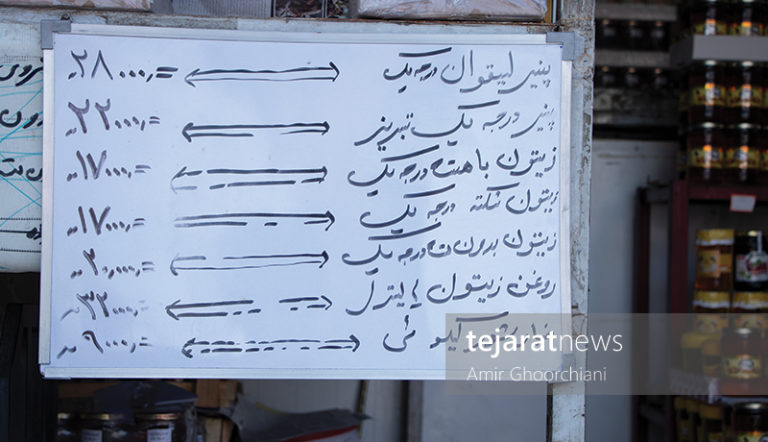 پنیر لیقوان درجه یک ۲۸۰۰۰/=
پنیر درجه یک تبریز ۲۲۰۰۰/=
زیتون با هسته درجه یک ۱۷۰۰۰/=
زیتون شکسته درجه یک ۱۷۰۰۰/=
زیتون بدون هسته درجه یک ۲۰,۰۰۰/=
روغن زیتون ۱ لیتری ۳۲۰۰۰/=
کیلوئی ۹۰۰۰/=
tejaratnews
Amir Ghoorchiani